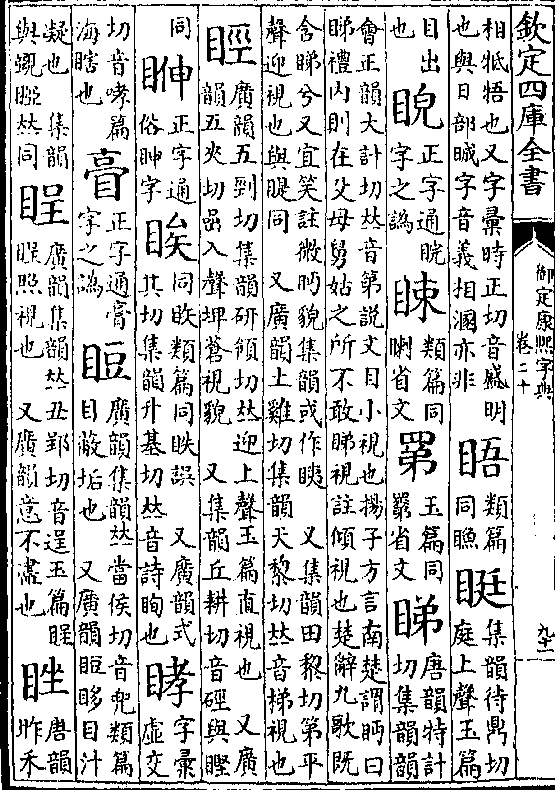 欽定四庫全書
御定康熙字典
卷二十
相牴牾也又字彙時正切音盛明
也與日部晠字音義相溷亦非
晤
類篇
同䁱
䀺
集韻待鼎切
庭上聲玉篇
目出
也
睨
正字通睨
字之譌
𥆩
類篇同
㗚省文
睇
唐韻特計
切集韻韻
會正韻大計切𠀤音第說文目小視也揚子方言南楚謂眄曰
睇禮內則在父母舅姑之所不敢睇視註傾視也楚辭九歌既
含睇兮又宜笑註微眄貌集韻或作眱 又集韻田黎切第平
聲迎視也與䁠同 又廣韻土雞切集韻天黎切𠀤音梯視也
廣韻五剄切集韻研領切𠀤迎上聲玉篇直視也 又廣
韻五夾切嵒入聲埤蒼視貌 又集韻丘耕切音硜與䁝
同
正字通
俗眒字
同昳類篇同眣誤 又廣韻式
其切集韻升基切𠀤音詩眴也
字彙
虛交
切音哮篇
海瞎也
正字通膏
字之譌
䀺
廣韻集韻𠀤當侯切音兜類篇
目蔽垢也 又廣韻䀺眵目汁
凝也 集韻
與覴𥇢𠀤同
睈
廣韻集韻𠀤丑郢切音逞玉篇睈
睈照視也 又廣韻意不盡也
唐韻
昨禾